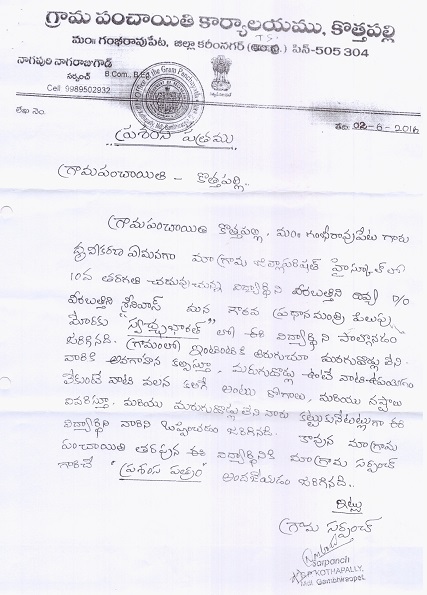 గ్రామ పంచాయితి కార్యాలయము, కొత్తపల్లి
మం॥ గంభీరావుపేట, జిల్లా కరీంనగర్ పిన్-505 304
నాగపురి నాగరాజుగౌడ్
B.Com., B.Ed
సర్పంచ్
Cell: 9989502932
లేఖ నెం.
తేది: 02-6-2016
ప్రశంస పత్రము
గ్రామపంచాయితి - కొత్తపల్లి..
గ్రామపంచాయితి కొత్తపల్లి, మం॥ గంభీరావుపేట గారు
ధృవీకరణ ఏమనగా మా గ్రామ జిల్లాపరిషత్ హైస్కూల్ లో
10వ తరగతి చదువుచున్న విద్యార్థిని వేలుత్తిని D/o
వేలుత్తిని శ్రీనివాస్ మన గౌరవ ప్రధానమంత్రి పిలుపు
మేరకు "స్వచ్ఛభారత్" లో ఈ విద్యార్థిని పాల్గొనడం
జరిగినది. (గ్రామంలో) ఇంటింటికి తిరుగుచూ మరుగుదొడ్లు లేని
వారికి అవగాహన కల్పిస్తూ, మరుగుదొడ్లు ఉంటే వాటి ఉపయోగం
లేకుంటే వాటి వలన కలిగే అంటు రోగాలు, మరియు నష్టాలు
వివరిస్తూ, మరియు మరుగుదొడ్లు లేని వారు కట్టుకునేటట్లుగా ఈ
విద్యార్థిని వారిని ఒప్పించడం జరిగినది. కావున మా గ్రామ
పంచాయితి తరపున ఈ విద్యార్థినికి మా గ్రామ సర్పంచ్
గారిచే "ప్రశంస పత్రం" అందజేయడం జరిగినది..
ఇట్లు
గ్రామ సర్పంచ్
Sarpanch
KOTHAPALLY,
Mdl. Gambhiraopet.